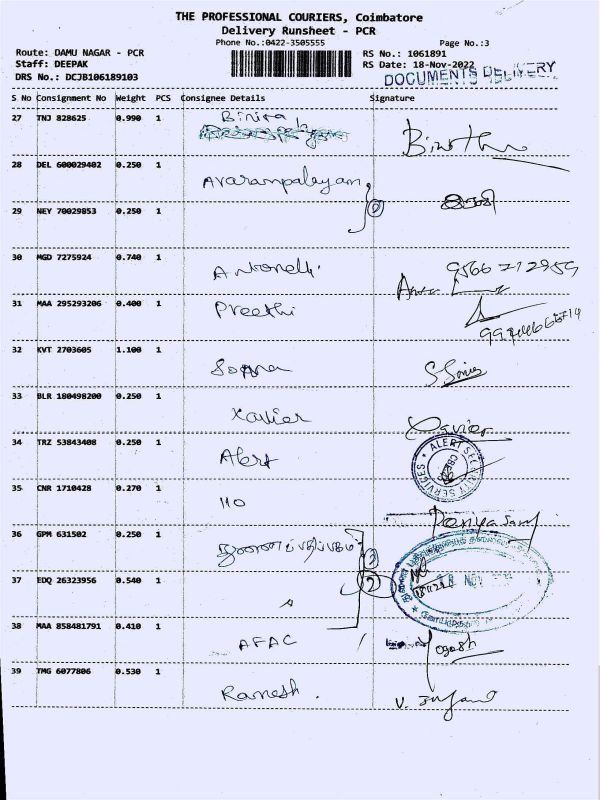 THE PROFESSIONAL COURIERS, Coimbatore
Delivery Runsheet - PCR
Phone No.:0422-3505555
Page No.:3
Route: DAMU NAGAR - PCR
RS No.: 1061891
Staff: DEEPAK
RS Date: 18-Nov-2022
DRS No.: DCJB106189103
DOCUMENTS DELIVERY
S No Consignment No Weight PCS Consignee Details Signature
27 TNJ 828625 0.990 1
28 DEL 600029402 0.250 1 Avarampalayam
29 NEY 70029853 0.250 1 2
30 MGD 7275924 0.740 1
9566212959
31 MAA 295293206 0.400 1 Preethi
32 KVT 2703605 1.100 1 S. Soniy
33 BLR 180498200 0.250 1 Xavier Xavier
34 TRZ 53843408 0.250 1 Alert ALERT SECURITY SERVICES CBE
35 CNR 1710428 0.270 1 110
36 GPM 631502 0.250 1 2
37 EDQ 26323956 0.540 1 2 18 NOV
38 MAA 858481791 0.410 1 AFAC Yogash
39 TMG 6077806 0.530 1 Ramesh.